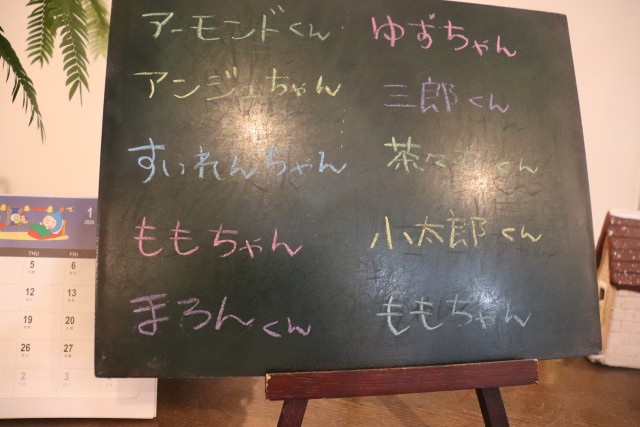 アーモンドくん
アンジュちゃん
すいれんちゃん
ももちゃん
まろんくん
ゆずちゃん
三郎くん
茶々丸くん
小太郎くん
ももちゃん
1
THU FRI
5 6
12 13
19 20
26 27
2 3